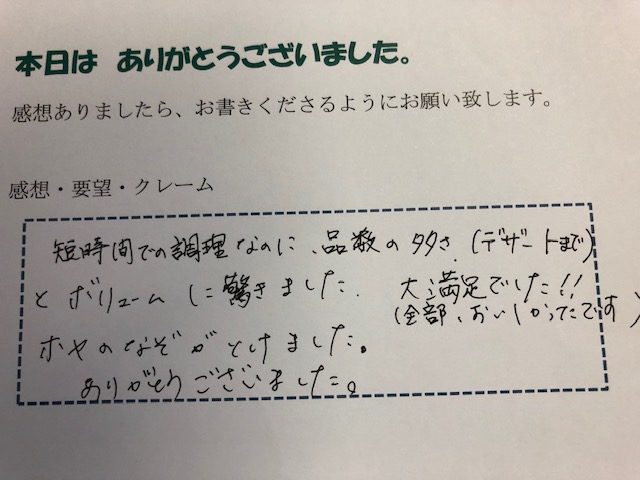 本日は ありがとうございました。
感想ありましたら、お書きくださるようにお願い致します。
感想・要望・クレーム
短時間での調理なのに、品数の多さ(デザートまで)
とボリュームに驚きました. 大満足でした!!
(全部、おいしかったです)
ホヤのなぞがとけました。
ありがとうございました。